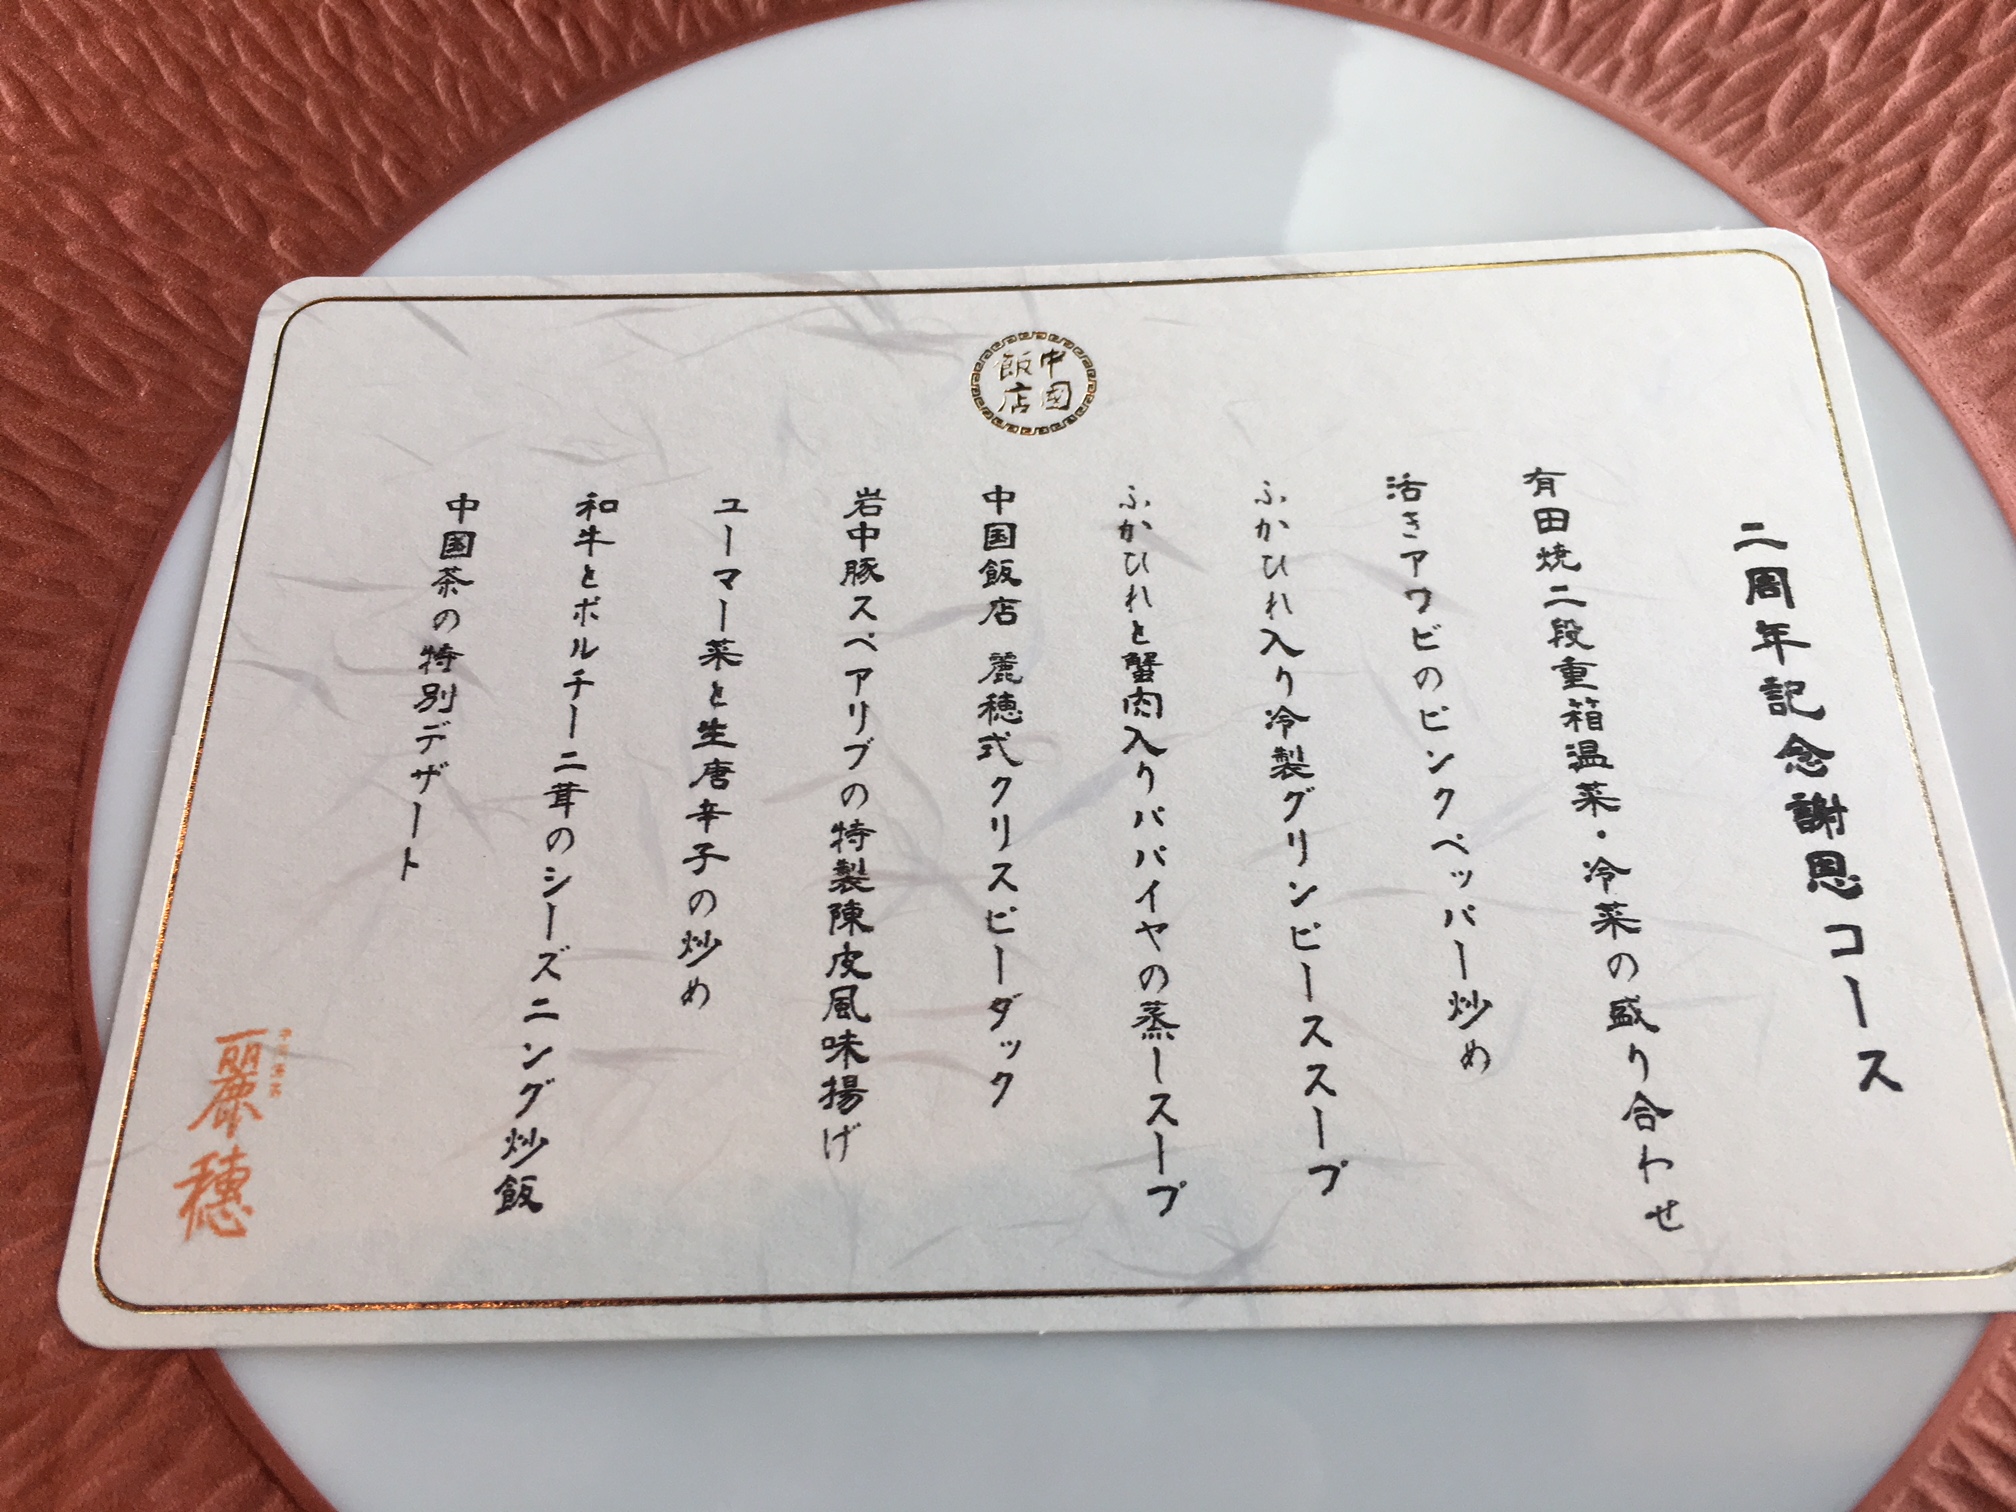 中国飯店
二周年記念謝恩コース
有田焼二段重箱温菜・冷菜の盛り合わせ
活きアワビのピンクペッパー炒め
ふかひれ入り冷製グリンピーススープ
ふかひれと蟹肉入りパパイヤの蒸しスープ
中国飯店 麗穂式クリスピーダック
岩中豚スペアリブの特製陳皮風味揚げ
ユーマー菜と生唐辛子の炒め
和牛とポルチーニ茸のシーズニング炒飯
中国茶の特別デザート
中国飯店
麗穂